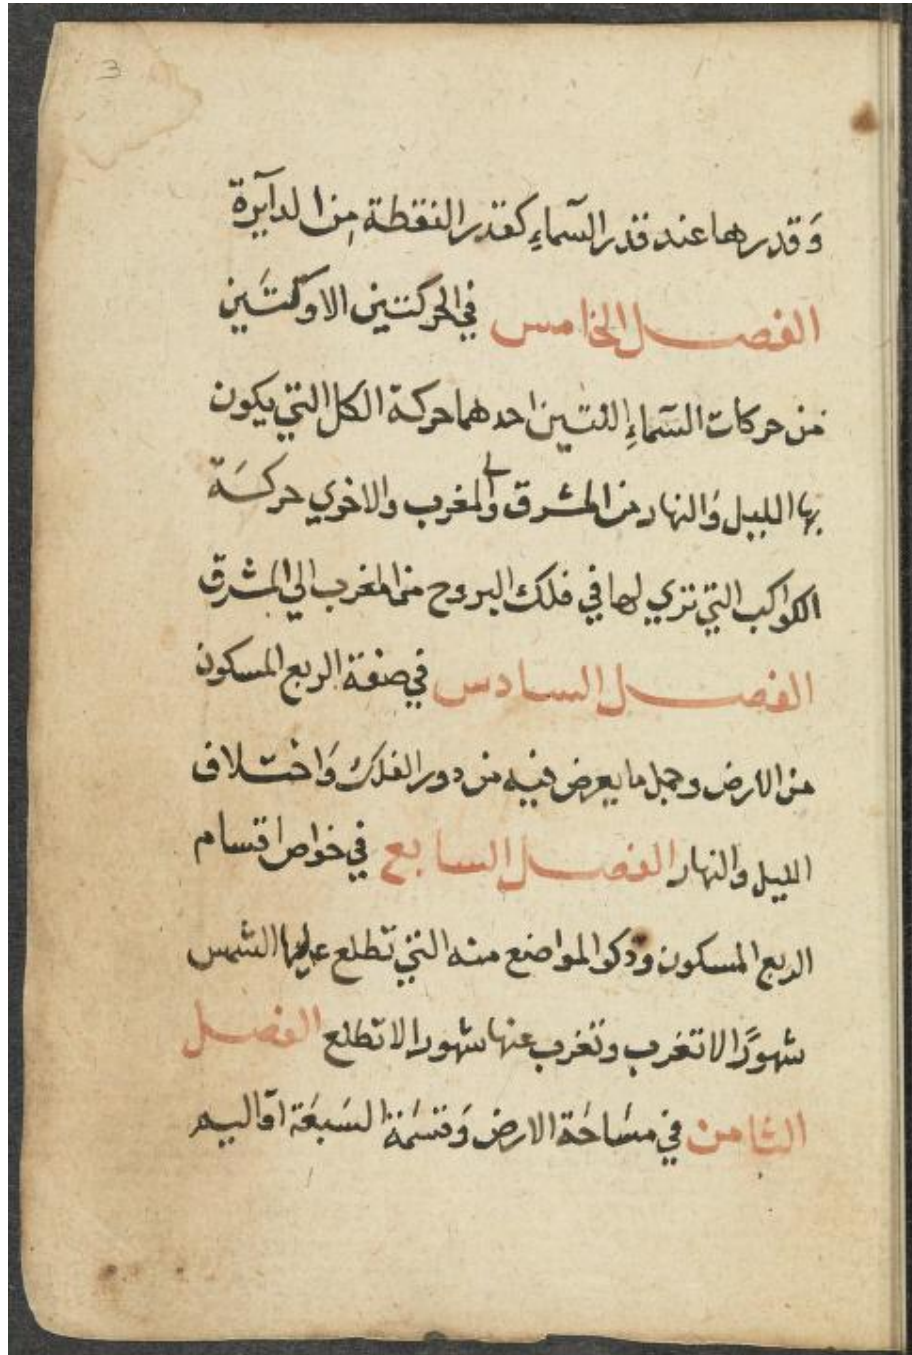 3
وَقدرها عند قدر السّماءِ كقدر النقطة مِن الدآيرة
الفصل الخامس في الحركتين الاوّلتَين
من حركات السّماءِ اللتين احدهما حركة الكل التي يكون
بها الليل وَالنهار من المشرق والمغرب والاخري حركَة
الكواكب التي تري لها في فلك البروج من المغرب الي المشرق
الفصل السادس في صفة الربع المسكون
من الارض وجمل ما يعرض فيه من دور الفلك وَاختلاف
الليل والنهار الفصل السابع في خواص اقسام
الربع المسكون وذكر المواضع منه التي تطلع عليها الشمس
شهورًا لا تغرب وتغرب عنها شهورا لا تطلع الفصل
الثامن في مسَاحَة الارض وَقسمَة السَبعَة اقاليم